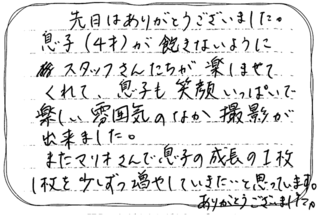 先日はありがとうございました。
息子(4才)が飽きないように
スタッフさんたちが楽しませて
くれて、息子も笑顔いっぱいで
楽しい雰囲気のなか撮影が
出来ました。
またマリオさんで息子の成長の1枚
1枚を少しずつ増やしていきたいと思っています。
ありがとうございました。